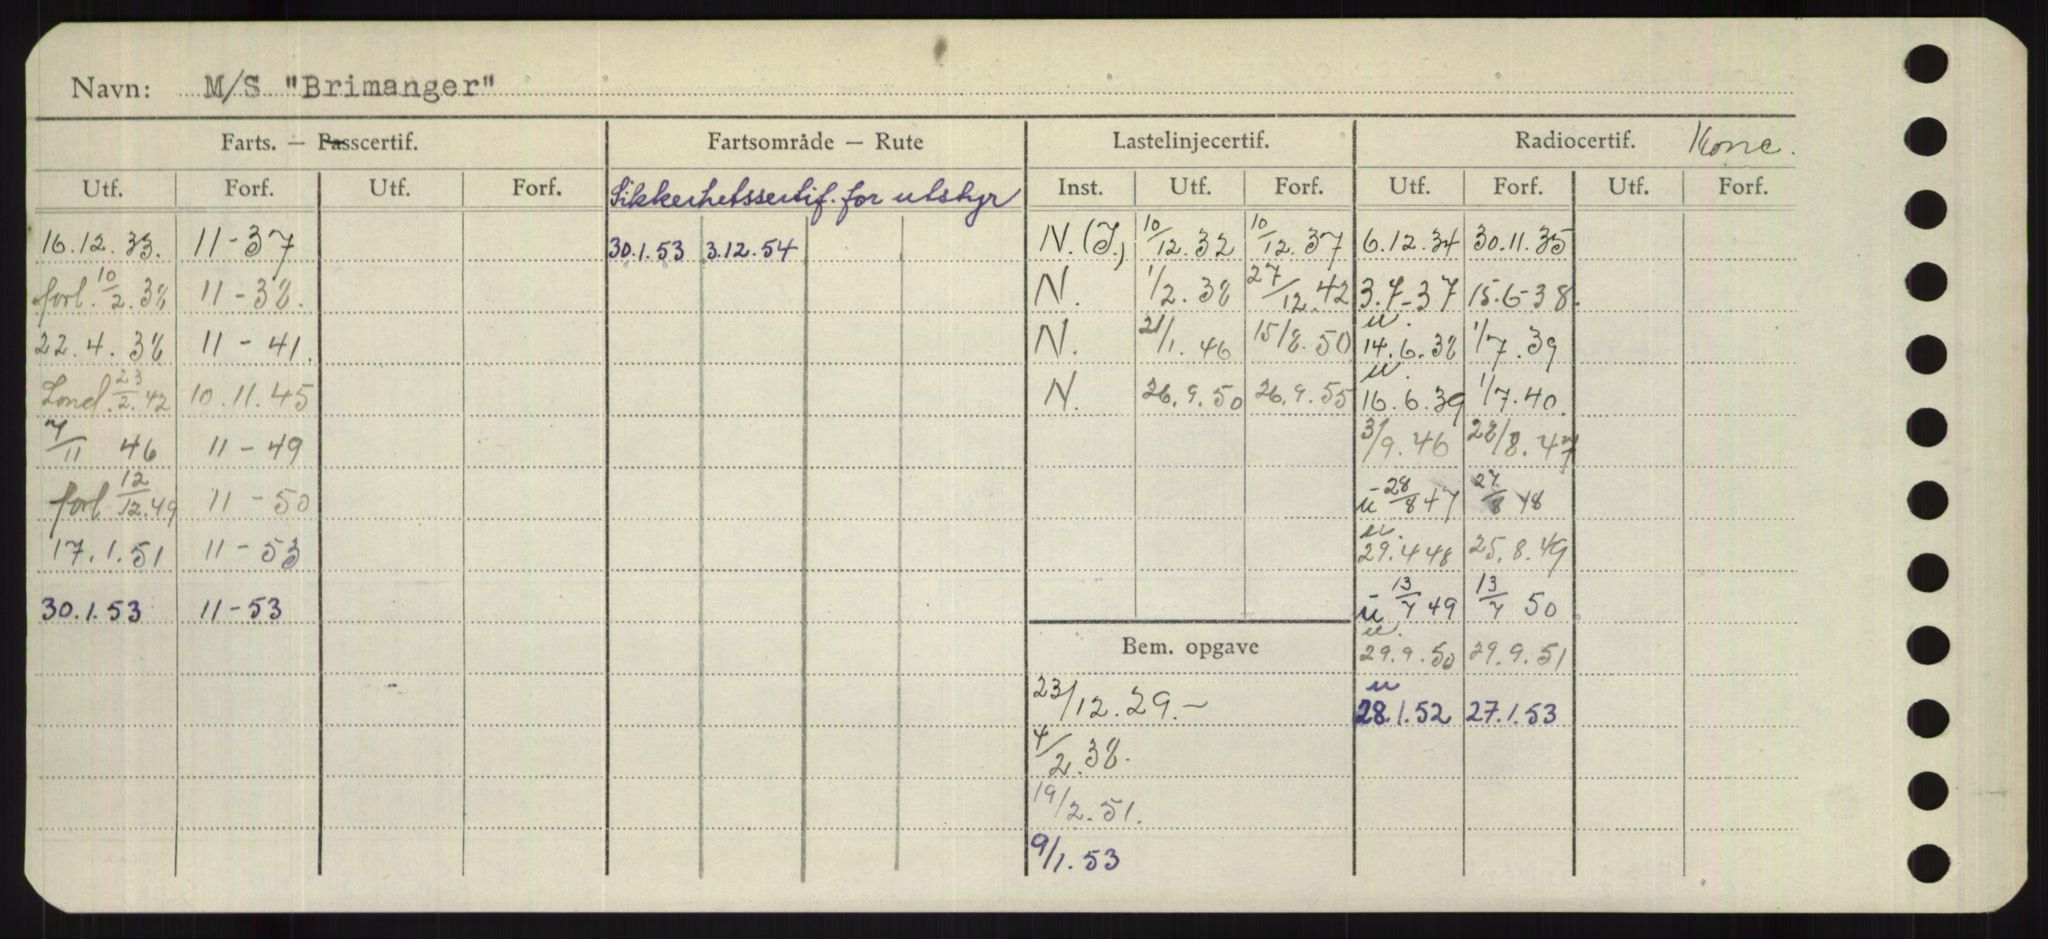 Navn: M/S "Brimanger"
Farts. — Passcertif. Fartsområde — Rute Lastelinjecertif. Radiocertif. Konc.
Utf. Forf. Utf. Forf. Sikkerhetssertif. for utstyr Inst. Utf. Forf. Utf. Forf. Utf. Forf.
16.12.33. 11-37 30.1.53 3.12.54 N.(I.) 10/12.32 10/12.37 6.12.34 30.11.35
forl. 10/2.38 11-38. N. 1/2.38 27/12.42 3.7-37 15.6-38.
22.4.38 11-41. N. 21/1.46 15/8.50 u. 14.6.38 1/7.39
Lond. 23/2.42 10.11.45 N. 26.9.50 26.9.55 u. 16.6.39 1/7.40.
7/11 46 11-49 3/9.46 28/8.47
forl 12/12.49 11-50 u 28/8 47 27/8 48
17.1.51 11-53 u. 29.4 48 25.8.49
30.1.53 11-53 u 13/7 49 13/7 50
Bem. opgave u. 29.9.50 29.9.51
23/12.29.- u 28.1.52 27.1.53
4/2.38.
19/2.51.
9/1.53